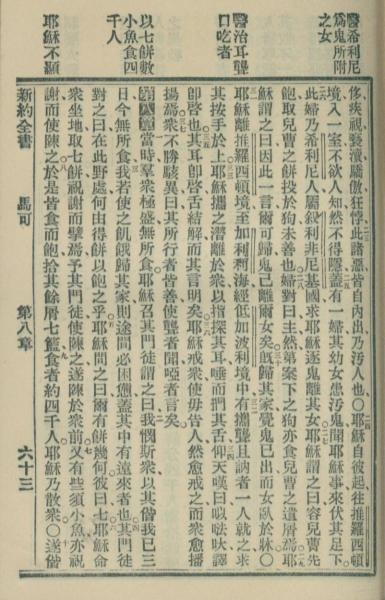 醫希利尼
爲鬼所附
之女
醫治耳聾
口吃者
以七餅數
小魚食四
千人
耶穌不顯
侈疾視褻瀆驕傲狂悖此諸惡皆自內出乃汚人也〇耶穌自彼起往推羅西頓
境入一室不欲人知然不得隱蓋有一婦其幼女患汚鬼聞耶穌事來伏其足下
此婦乃希利尼人屬敘利非尼基國求耶穌逐鬼離其女耶穌謂之曰容兒曹先
飽取兒曹之餅投於狗未善也婦對曰主然第案下之狗亦食兒曹之遺屑焉耶
穌謂之曰因此一言爾可歸鬼已離爾女矣旣歸其家覺鬼已出而女臥於牀〇
耶穌離推羅西頓境至加利利海經低加波利境中有攜聾且訥者一人就之求
其按手於上耶穌攜之潛離於衆以指探其耳唾而捫其舌仰天嘆曰譯
卽啓也其耳卽啓舌結解而其言明矣耶穌戒衆使毋告人然愈戒之而衆愈播
揚焉衆不勝駭異曰其所行者皆善使聾者聞啞者言矣
第八章當時羣衆極盛無所食耶穌召其門徒謂之曰我憫斯衆以其偕我已三
日今無所食我若使之飢餓歸其家則途間必困憊蓋其中有遠來者也其門徒
對之曰在此野處何由得餅以飽之乎耶穌問之曰爾有餅幾何彼曰七耶穌命
衆坐地取七餅祝謝而擘焉予其門徒使陳之遂陳於衆前又有些須小魚亦祝
謝而使陳之於是皆食而飽拾其餘屑七籃食者約四千人耶穌乃散衆〇遂偕
新約全書 馬可 第八章 六十三